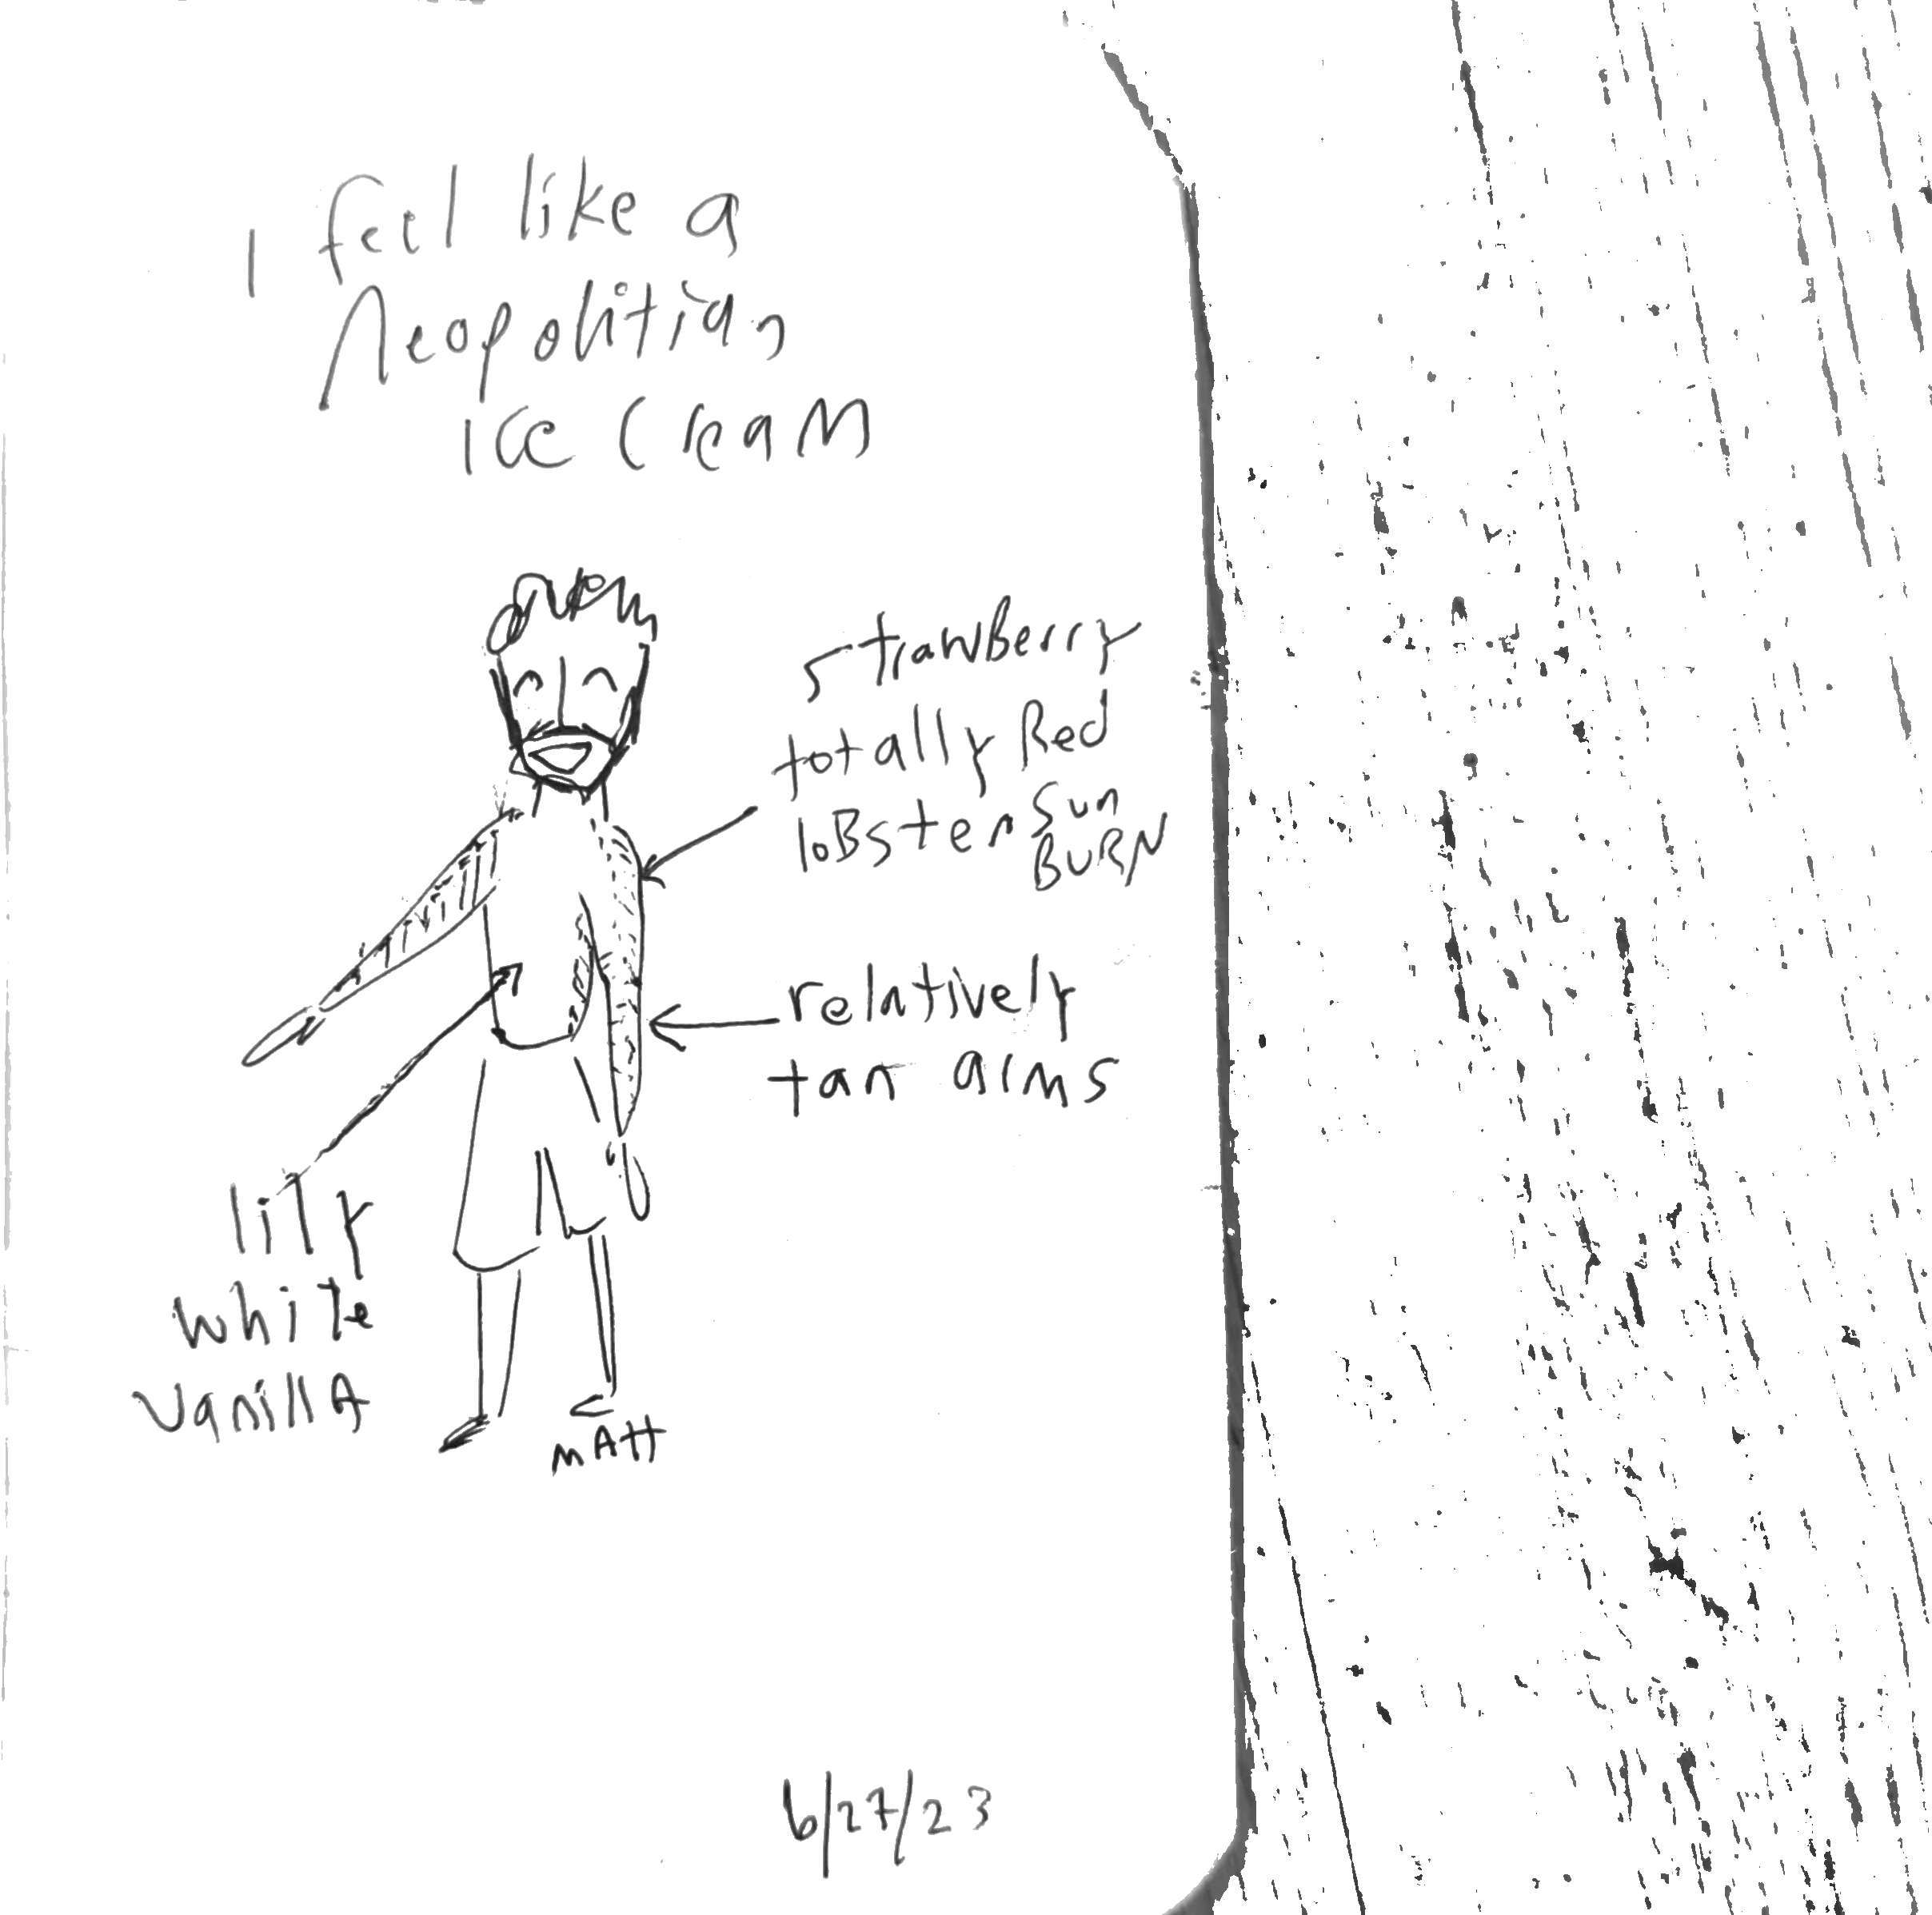 I feel like a
Neopolitian
ICE CREAM
strawBerry
totally Red
loBster sun
BURN
relatively
tan arms
lily
white
vanillA
mAtt
6/27/23